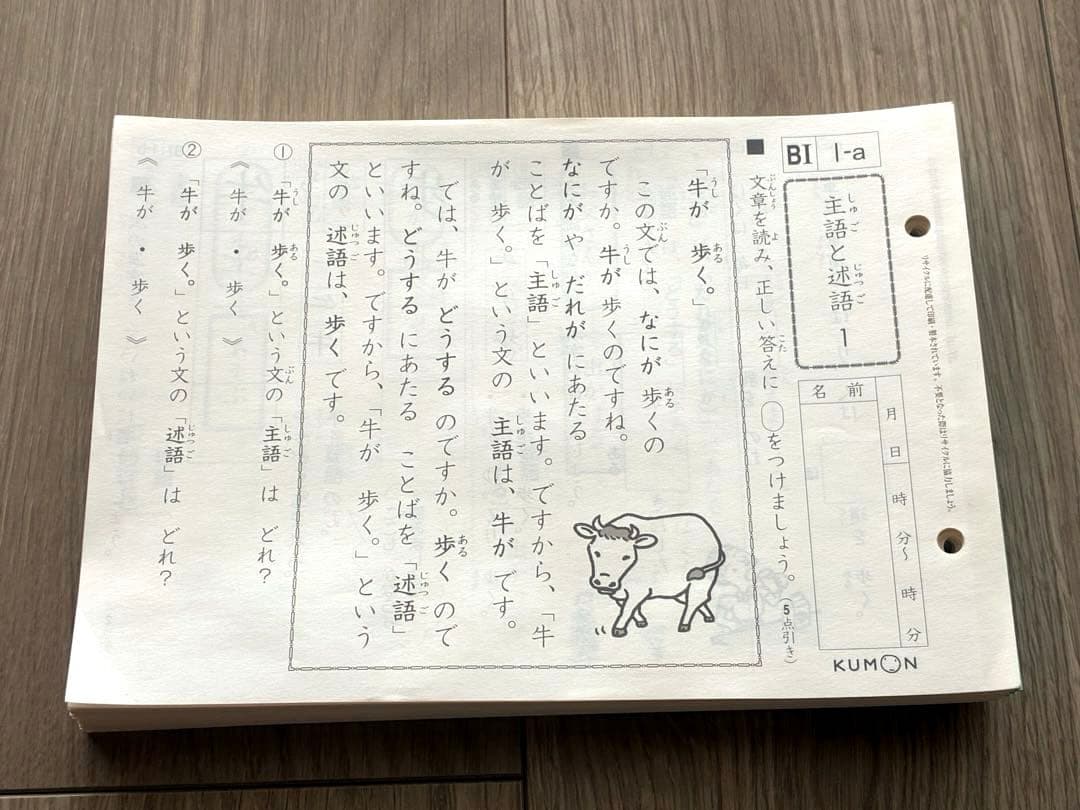 BI 1-a
主語と述語 1
月 日 時 分〜 時 分
名前
KUMON
■ 文章を読み、正しい答えに○をつけましょう。(5点引き)
「牛が 歩く。」
この文では、なにが 歩くの
ですか。牛が 歩くのですね。
なにが や だれが にあたる
ことばを 「主語」といいます。ですから、「牛
が 歩く。」という文の 主語は、牛が です。
では、牛が どうする のですか。歩く ので
すね。どうする にあたる ことばを 「述語」
といいます。ですから、「牛が 歩く。」という
文の 述語は、歩く です。
① 「牛が 歩く。」という文の 「主語」は どれ?
《 牛が ・ 歩く 》
② 「牛が 歩く。」という文の 「述語」は どれ?
《 牛が ・ 歩く 》